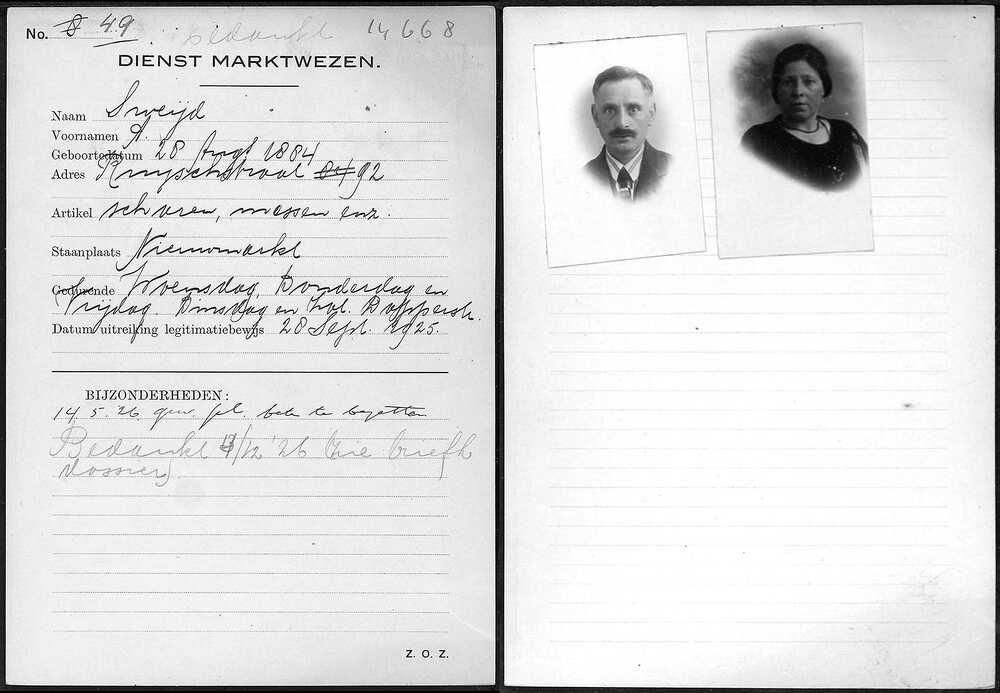 No. 8 49 Bedankt 14668
DIENST MARKTWEZEN.
Naam Sweijd
Voornamen A.
Geboortedatum 28 Augt 1884
Adres Ruyschstraat 84 92
Artikel scharen, messen enz.
Staanplaats Nieuwmarkt
Gedurende Woensdag, Donderdag en
Vrijdag. Dinsdag en Zat. Dapperstr.
Datum uitreiking legitimatiebewijs 28 Sept. 1925.
BIJZONDERHEDEN:
14.5.26 gew. pl. beter te bezetten
Bedankt 4/12 '26 (zie briefh
dossier)
Z. O. Z.